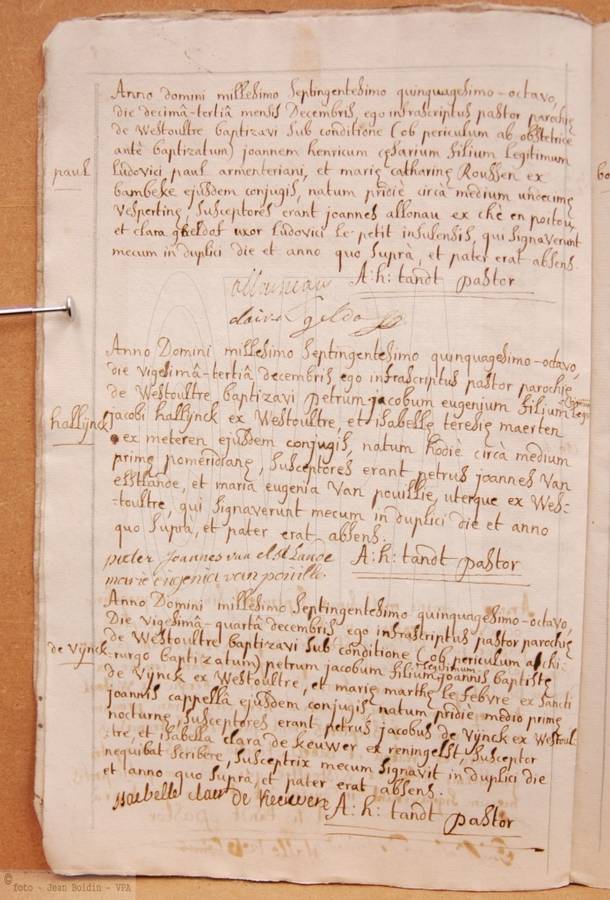 Anno domini millesimo septingentesimo quinquagesimo-octavo,
die decimâ-tertiâ mensis Decembris, ego infrascriptus pastor parochię
de Westoultre baptizavi sub conditione (ob periculum ab obstetrice
antè baptizatum) joannem henricum cęsarium filium legitimum
paul
Ludovici paul armenteriani, et marię catharinę Roussen ex
bambeke ejusdem conjugis, natum pridiè circà medium undecimę
vespertinę, susceptores erant joannes allonau ex chè en poitou,
et clara gheldof uxor Ludovici le petit insulensis, qui signaverunt
mecum in duplici die et anno quo suprà, et pater erat absens.
A: h: tandt pastor
Anno Domini millesimo septingentesimo quinquagesimo-octavo,
die vigesimâ-tertiâ decembris, ego infrascriptus pastor parochię
de Westoultre baptizavi petrum-jacobum eugenium filium
hallÿnck
jacobi hallÿnck ex Westoultre, et isabellę teresię maerten
ex meteren ejusdem conjugis, natum hodiè circà medium
primę pomeridianę, susceptores erant petrus joannes van
elstlande, et maria eugenia van pouillie, uterque ex Wes-
-toultre, qui signaverunt mecum in duplici die et anno
quo suprà, et pater erat absens.
pieter joannes van elstlande A: h: tandt pastor
marie eugenia van pouille
Anno Domini millesimo septingentesimo quinquagesimo-octavo,
Die vigesimâ-quartâ decembris, ego infrascriptus pastor parochię
de Westoultre baptizavi sub conditione (ob periculum a chi-
de vÿnck
-rurgo baptizatum) petrum jacobum filium legitimum joannis baptistę
de vÿnck ex Westoultre, et marię marthę le febvre ex sancti
joannis cappellâ ejusdem conjugis, natum pridiè medio primę
nocturnę, susceptores erant petrus jacobus de vÿnck ex Westoul-
-tre, et isabella clara de keuwer ex reningelst, susceptor
nequibat scribere, susceptrix mecum signavit in duplici die
et anno quo suprà, et pater erat absens.
isabelle claer de A: h: tandt pastor
© foto - Jean Boidin - VPA